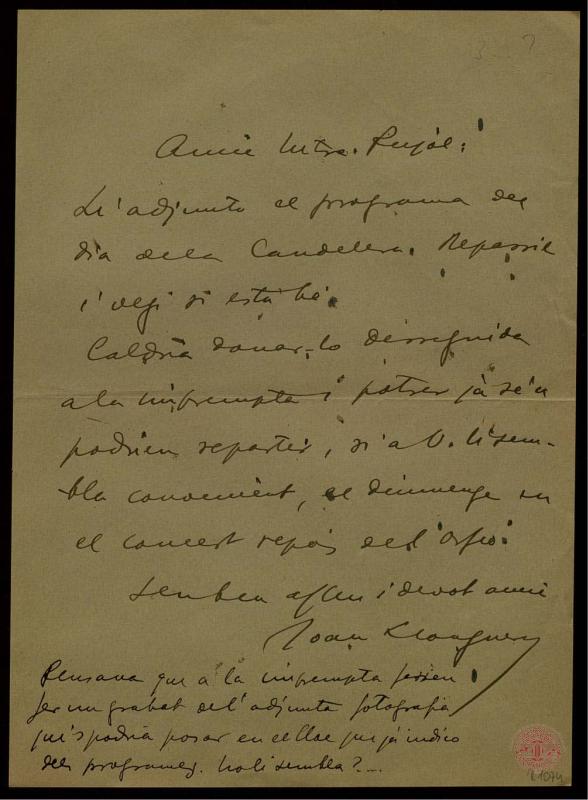 Amic Mtre. Pujol:
Li adjunto el programa del
dia de la Candelera. Repassil
i vegi si está bé.
Caldría donar-lo desseguida
a la impremta i potser já se'n
podrien repartir, si a V. li sem-
bla convenient, el diumenge en
el concert del'Orfeó.
Seu ben afm i devot amic
Joan Llongueras
Pensava que a la impremta fessen
fer un grabat del'adjunta fotografía
qu's podría posar en el lloc que já indico
dels programes. No li sembla?...
R 1074